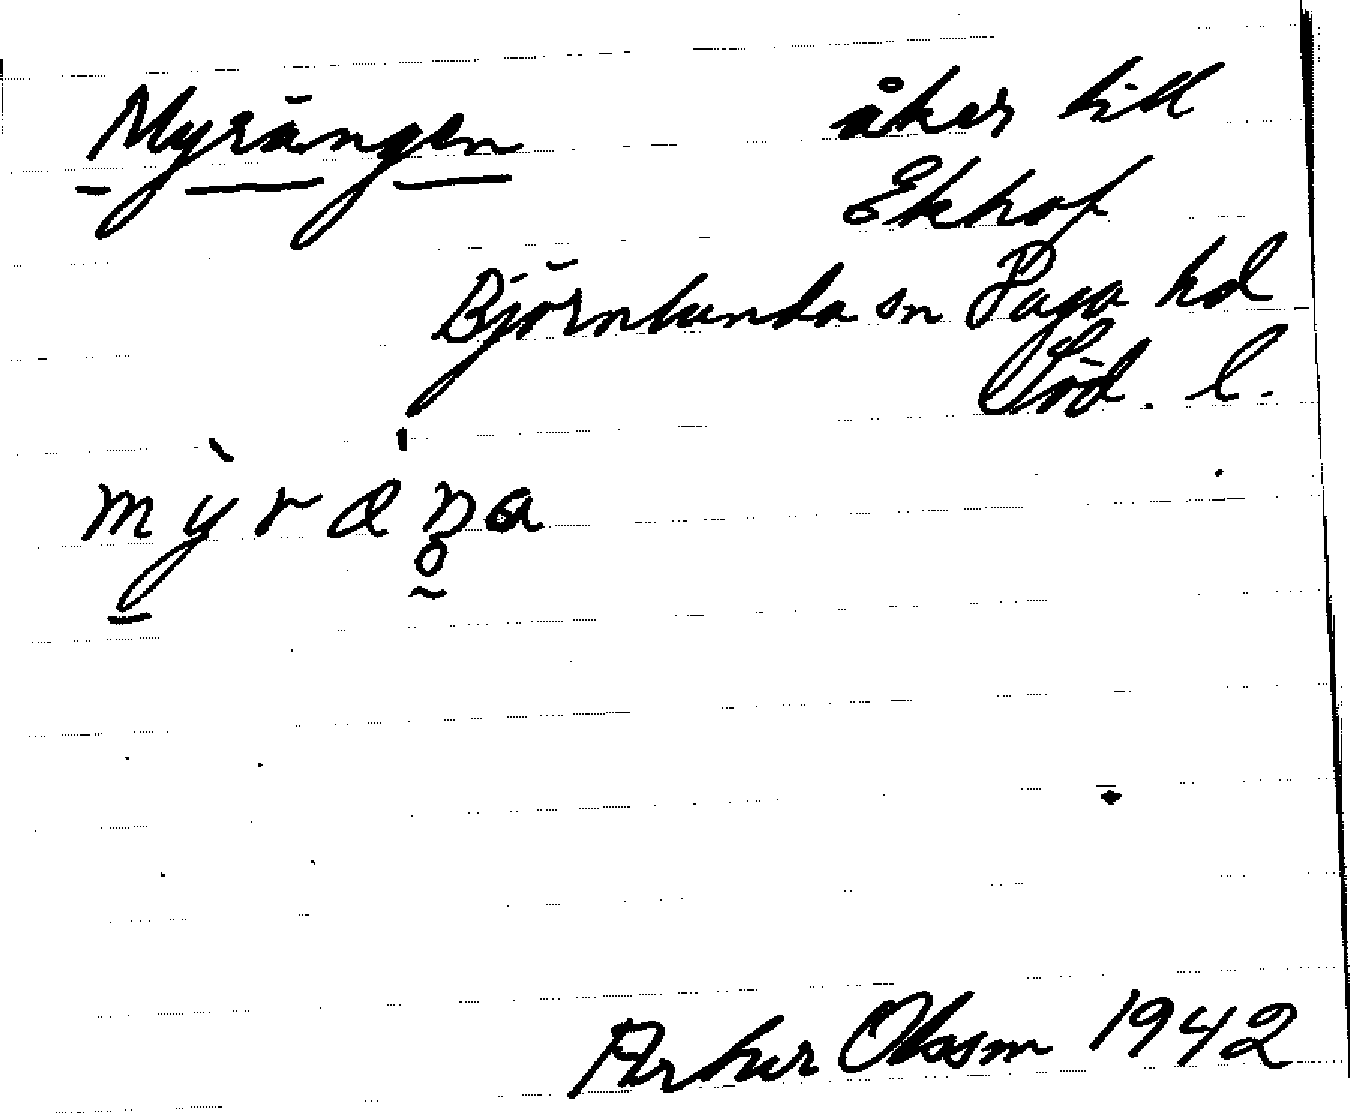 Myrängen åker till
Ekhof
Björnlunda sn Daga hd
Söd. l.
Arthur Olsson 1942